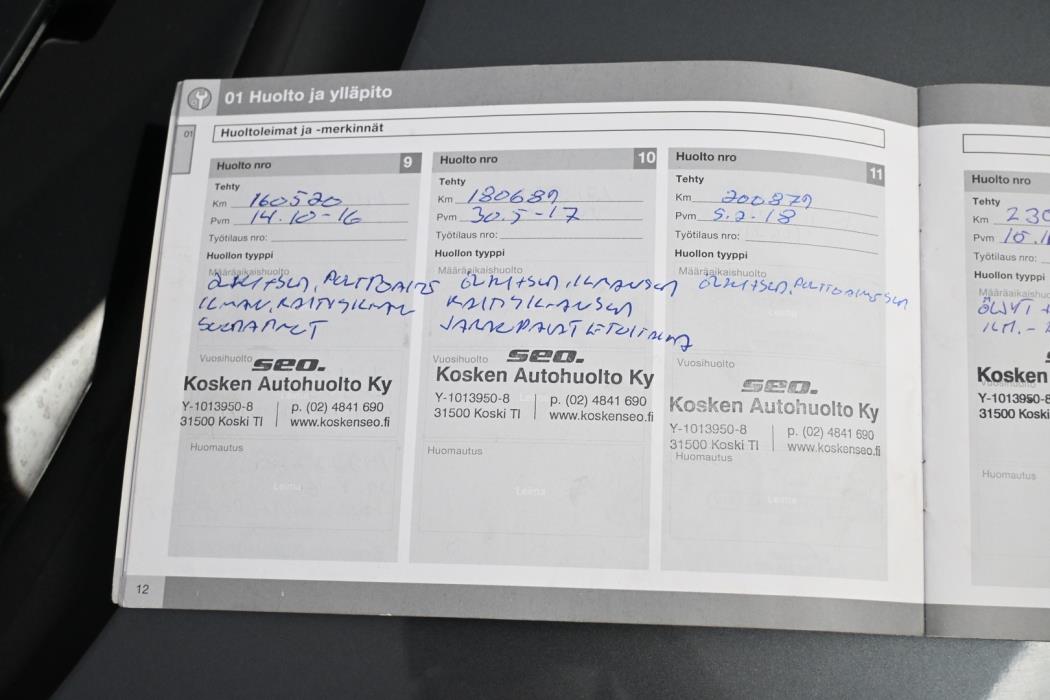 01 Huolto ja ylläpito
01
Huoltoleimat ja -merkinnät
Huolto nro 9
Tehty
Km 160520
Pvm 14.10-16
Työtilaus nro:
Huollon tyyppi
Määräaikaishuolto
ILMAN, RAITISILMAN
SUODATTIMET
Vuosihuolto
seo.
Kosken Autohuolto Ky
Y-1013950-8 p. (02) 4841 690
31500 Koski Tl www.koskenseo.fi
Huomautus
Leima
Huolto nro 10
Tehty
Km 180689
Pvm 30.5-17
Työtilaus nro:
Huollon tyyppi
Määräaikaishuolto
RAITISILMANSUOD
Vuosihuolto
seo.
Kosken Autohuolto Ky
Y-1013950-8 p. (02) 4841 690
31500 Koski Tl www.koskenseo.fi
Huomautus
Leima
Huolto nro 11
Tehty
Km 200879
Pvm 5.2-18
Työtilaus nro:
Huollon tyyppi
Määräaikaishuolto
Leima
Vuosihuolto
seo.
Kosken Autohuolto Ky
Y-1013950-8 p. (02) 4841 690
31500 Koski Tl www.koskenseo.fi
Huomautus
Leima
12
Huolto nro
Tehty
Km 230
Pvm
Työtilaus nro:
Huollon tyyppi
ÖLJYT +
ILM.-
Kosken
Y-1013950-8
31500 Koski
Huomautus